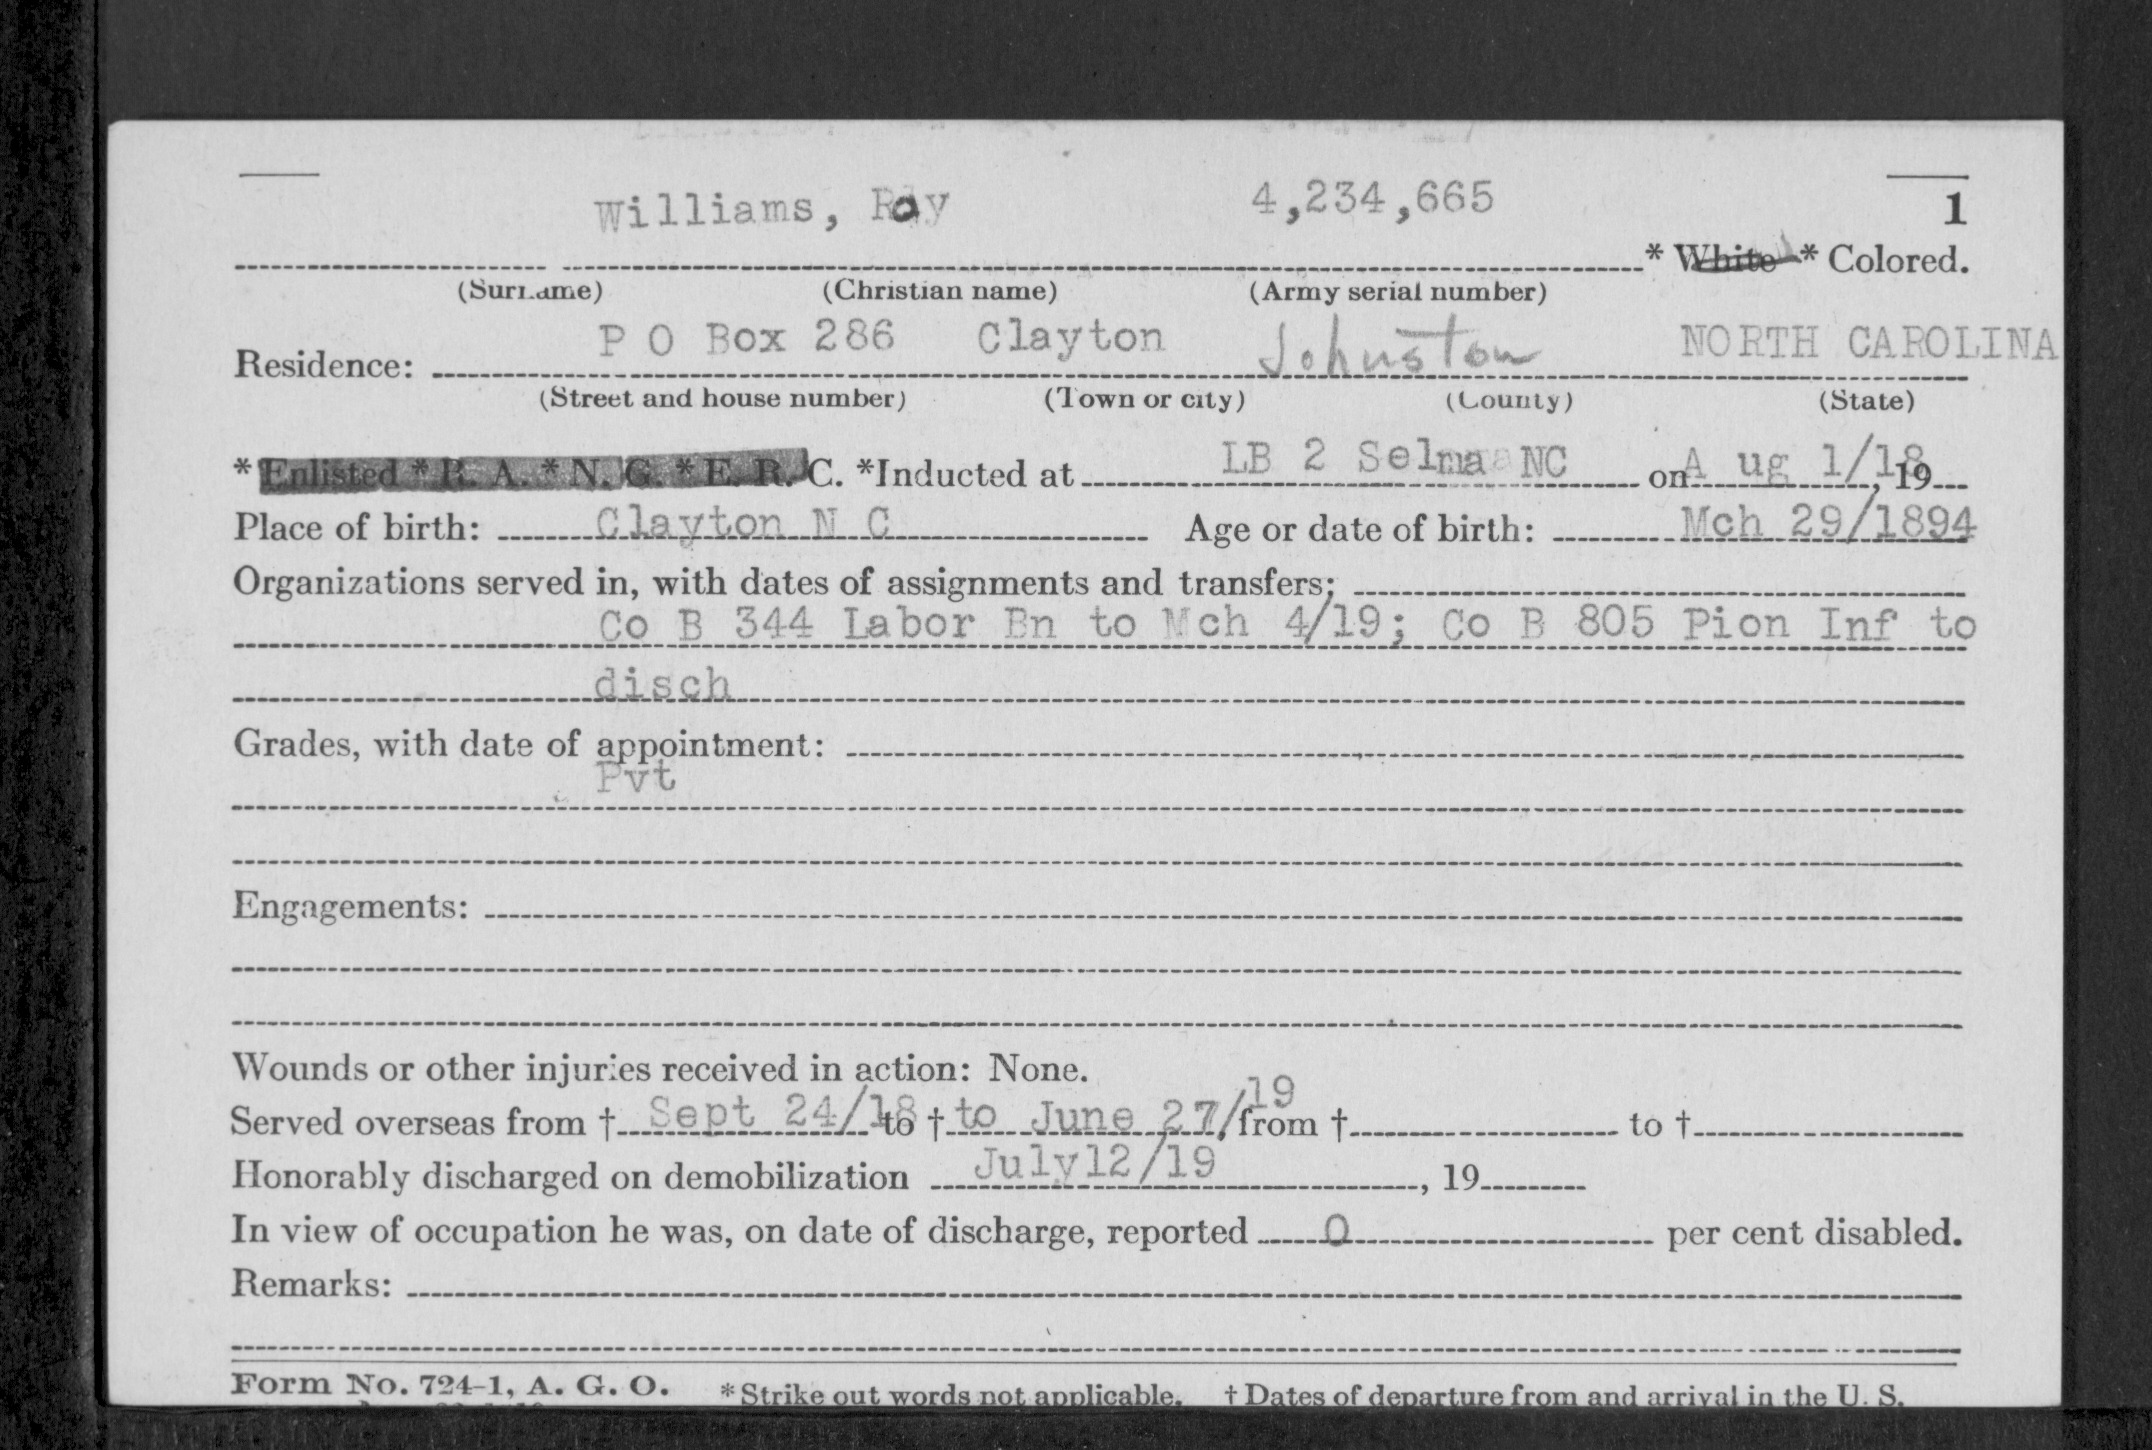 Williams, Roy 4,234,665 1
* White * Colored.
(Surname) (Christian name) (Army serial number)
P O Box 286 Clayton Johnston NORTH CAROLINA
Residence:
(Street and house number) (Town or city) (County) (State)
* Enlisted * R. A. * N. G. * E. R. C. *Inducted at LB 2 Selma NC on A ug 1/18, 19
Place of birth: Clayton N C Age or date of birth: Mch 29/1894
Organizations served in, with dates of assignments and transfers:
Co B 344 Labor Bn to Mch 4/19; Co B 805 Pion Inf to
disch
Grades, with date of appointment:
Pvt
Engagements:
Wounds or other injuries received in action: None.
Served overseas from † Sept 24/18 to † to June 27/19, from † to †
Honorably discharged on demobilization July12/19, 19
In view of occupation he was, on date of discharge, reported 0 per cent disabled.
Remarks:
Form No. 724-1, A. G. O. * Strike out words not applicable. † Dates of departure from and arrival in the U. S.